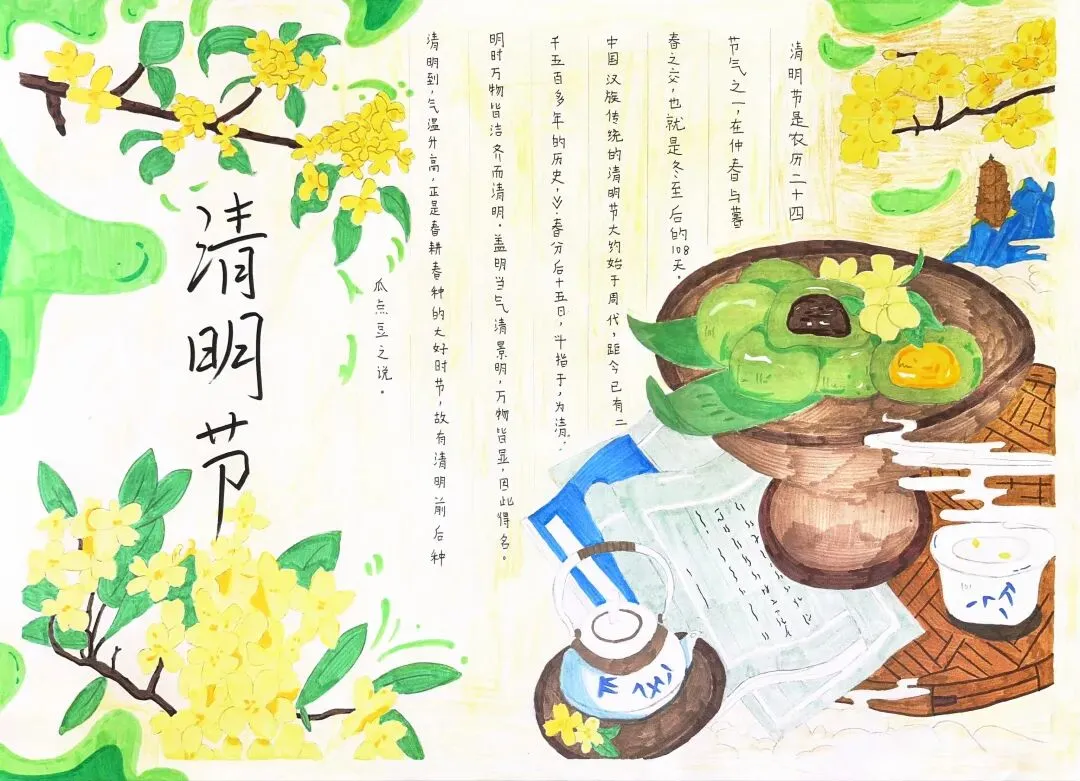 清明节
清明节是农历二十四
节气之一,在仲春与暮
春之交,也就是冬至后的108天。
中国汉族传统的清明节大约始于周代,距今已有二
千五百多年的历史,》:春分后十五日,斗指于,为清.
明时万物皆洁齐而清明。盖明当气清景明,万物皆显,因此得名。
清明到,气温升高,正是春耕春种的大好时节,故有清明前后种
瓜点豆之说。